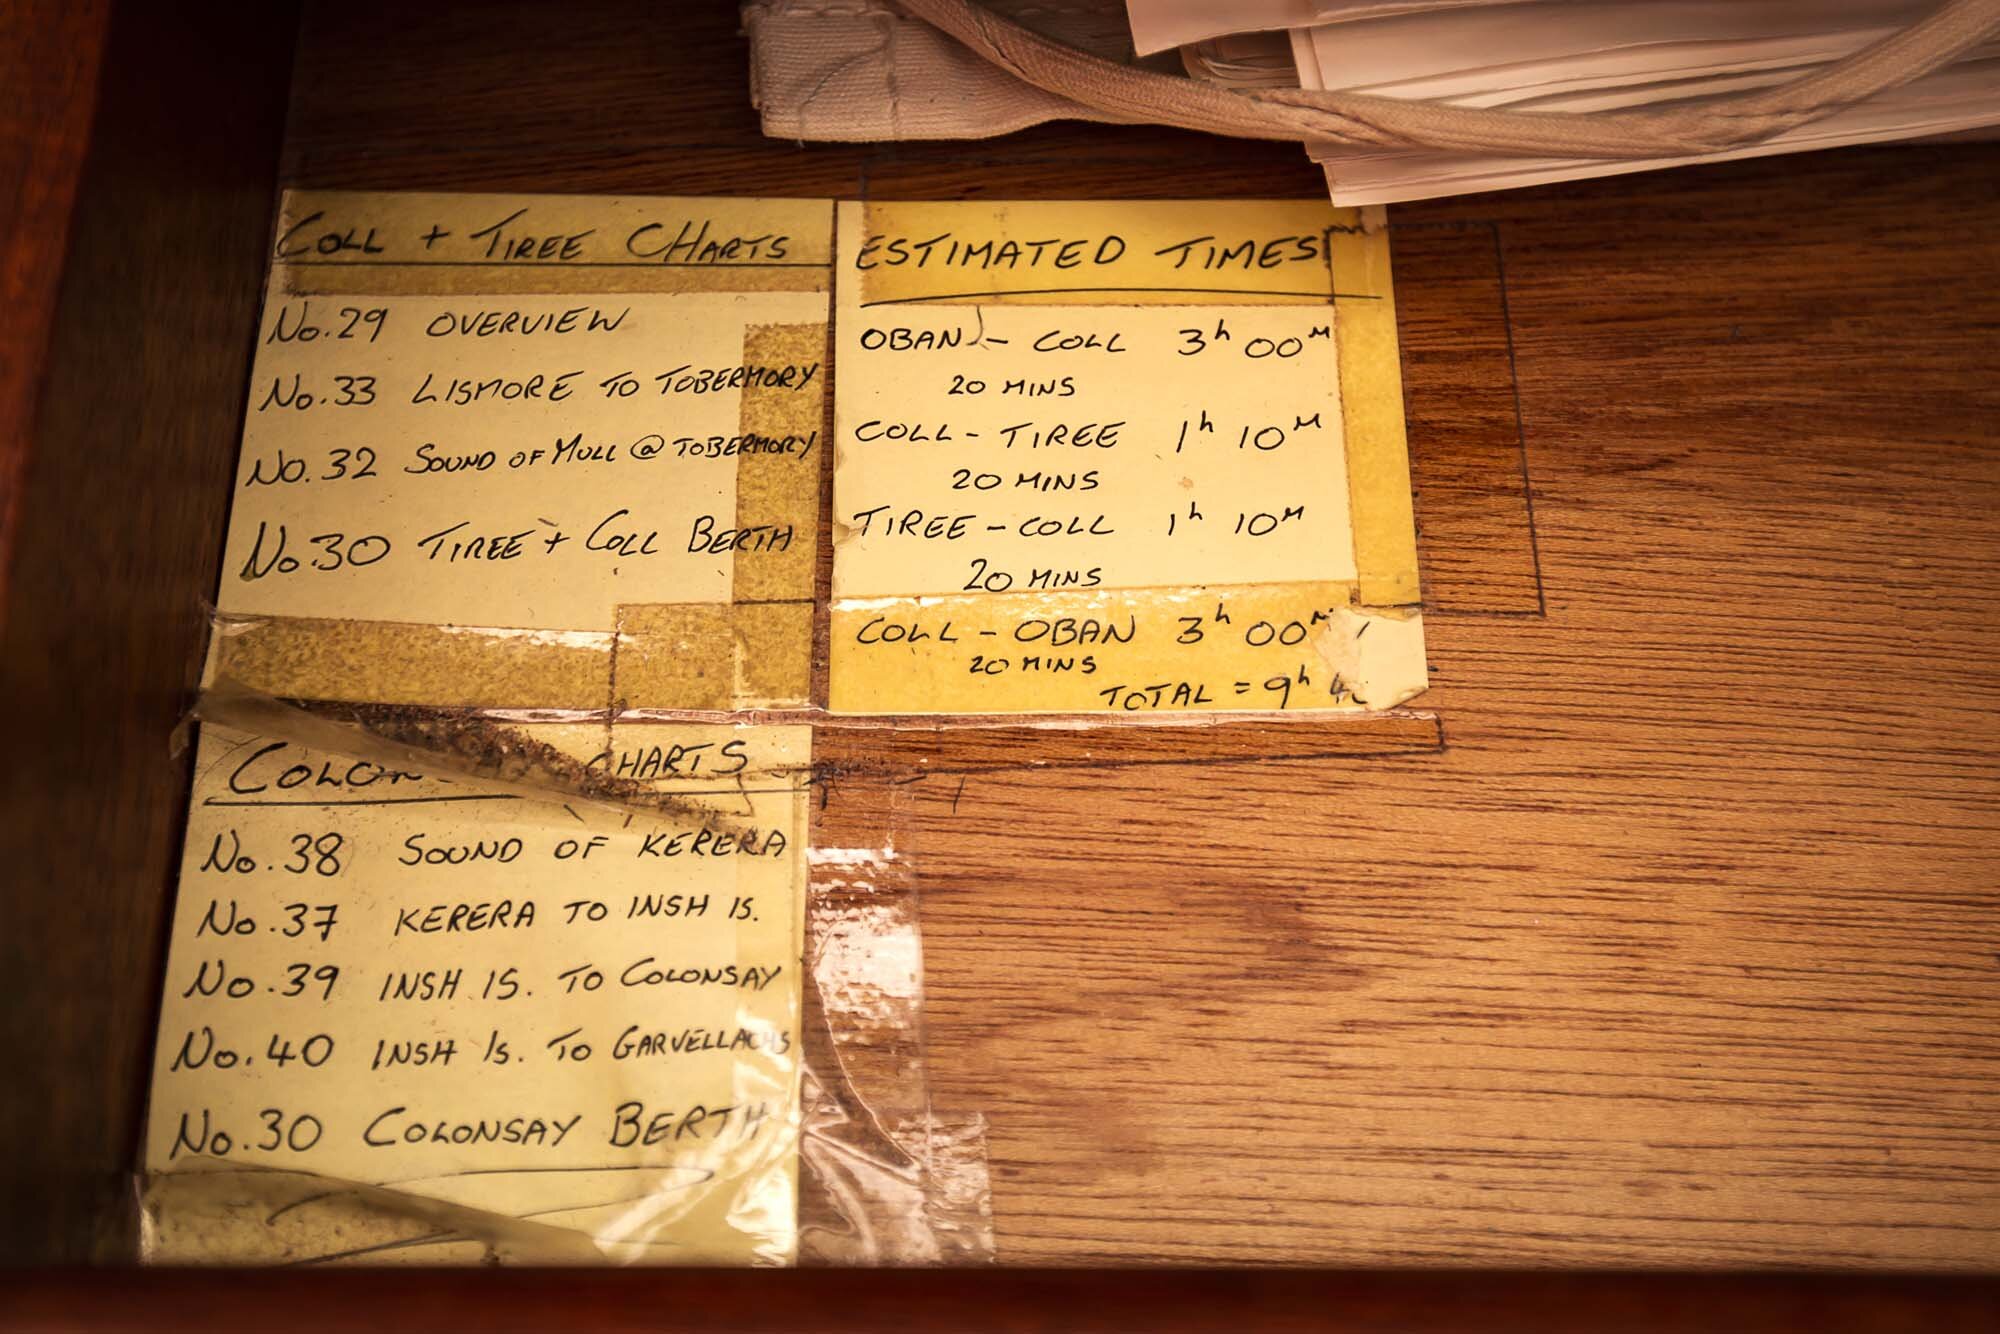 COLL + TIREE CHARTS
No.29 OVERVIEW
No.33 LISMORE TO TOBERMORY
No.32 SOUND OF MULL @ TOBERMORY
No.30 TIREE + COLL BERTH
ESTIMATED TIMES
OBAN - COLL 3h 00M
20 MINS
COLL - TIREE 1h 10M
20 MINS
TIREE - COLL 1h 10M
20 MINS
COLL - OBAN 3h 00M
20 MINS
TOTAL = 9h
CHARTS
No.38 SOUND OF KERERA
No.37 KERERA TO INSH IS.
No.39 INSH IS. TO COLONSAY
No.40 INSH IS. TO GARVELLACHS
No.30 COLONSAY BERTH